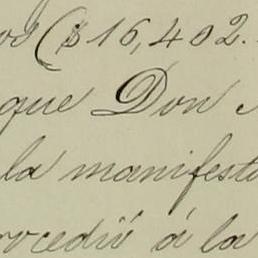 os ($16,402.
que Don
la manifesta
rocedió á la